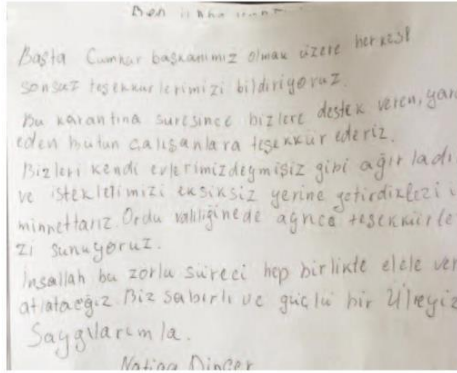 Ben
Başta Cumhur başkanımız olmak üzere herkese
sonsuz teşekkürlerimizi bildiriyoruz.
Bu karantina süresince bizlere destek veren, yar
eden bütün çalışanlara teşekkür ederiz.
Bizleri kendi evlerimizdeymişiz gibi ağırladı
ve isteklerimizi eksiksiz yerine getirdikleri i
minnettarız. Ordu valiliğinede ayrıca teşekkürle
zi sunuyoruz.
İnşallah bu zorlu süreci hep birlikte elele ver
atlatacağız. Biz sabırlı ve güçlü bir Ülkeyiz
Saygılarımla.
Dinçer